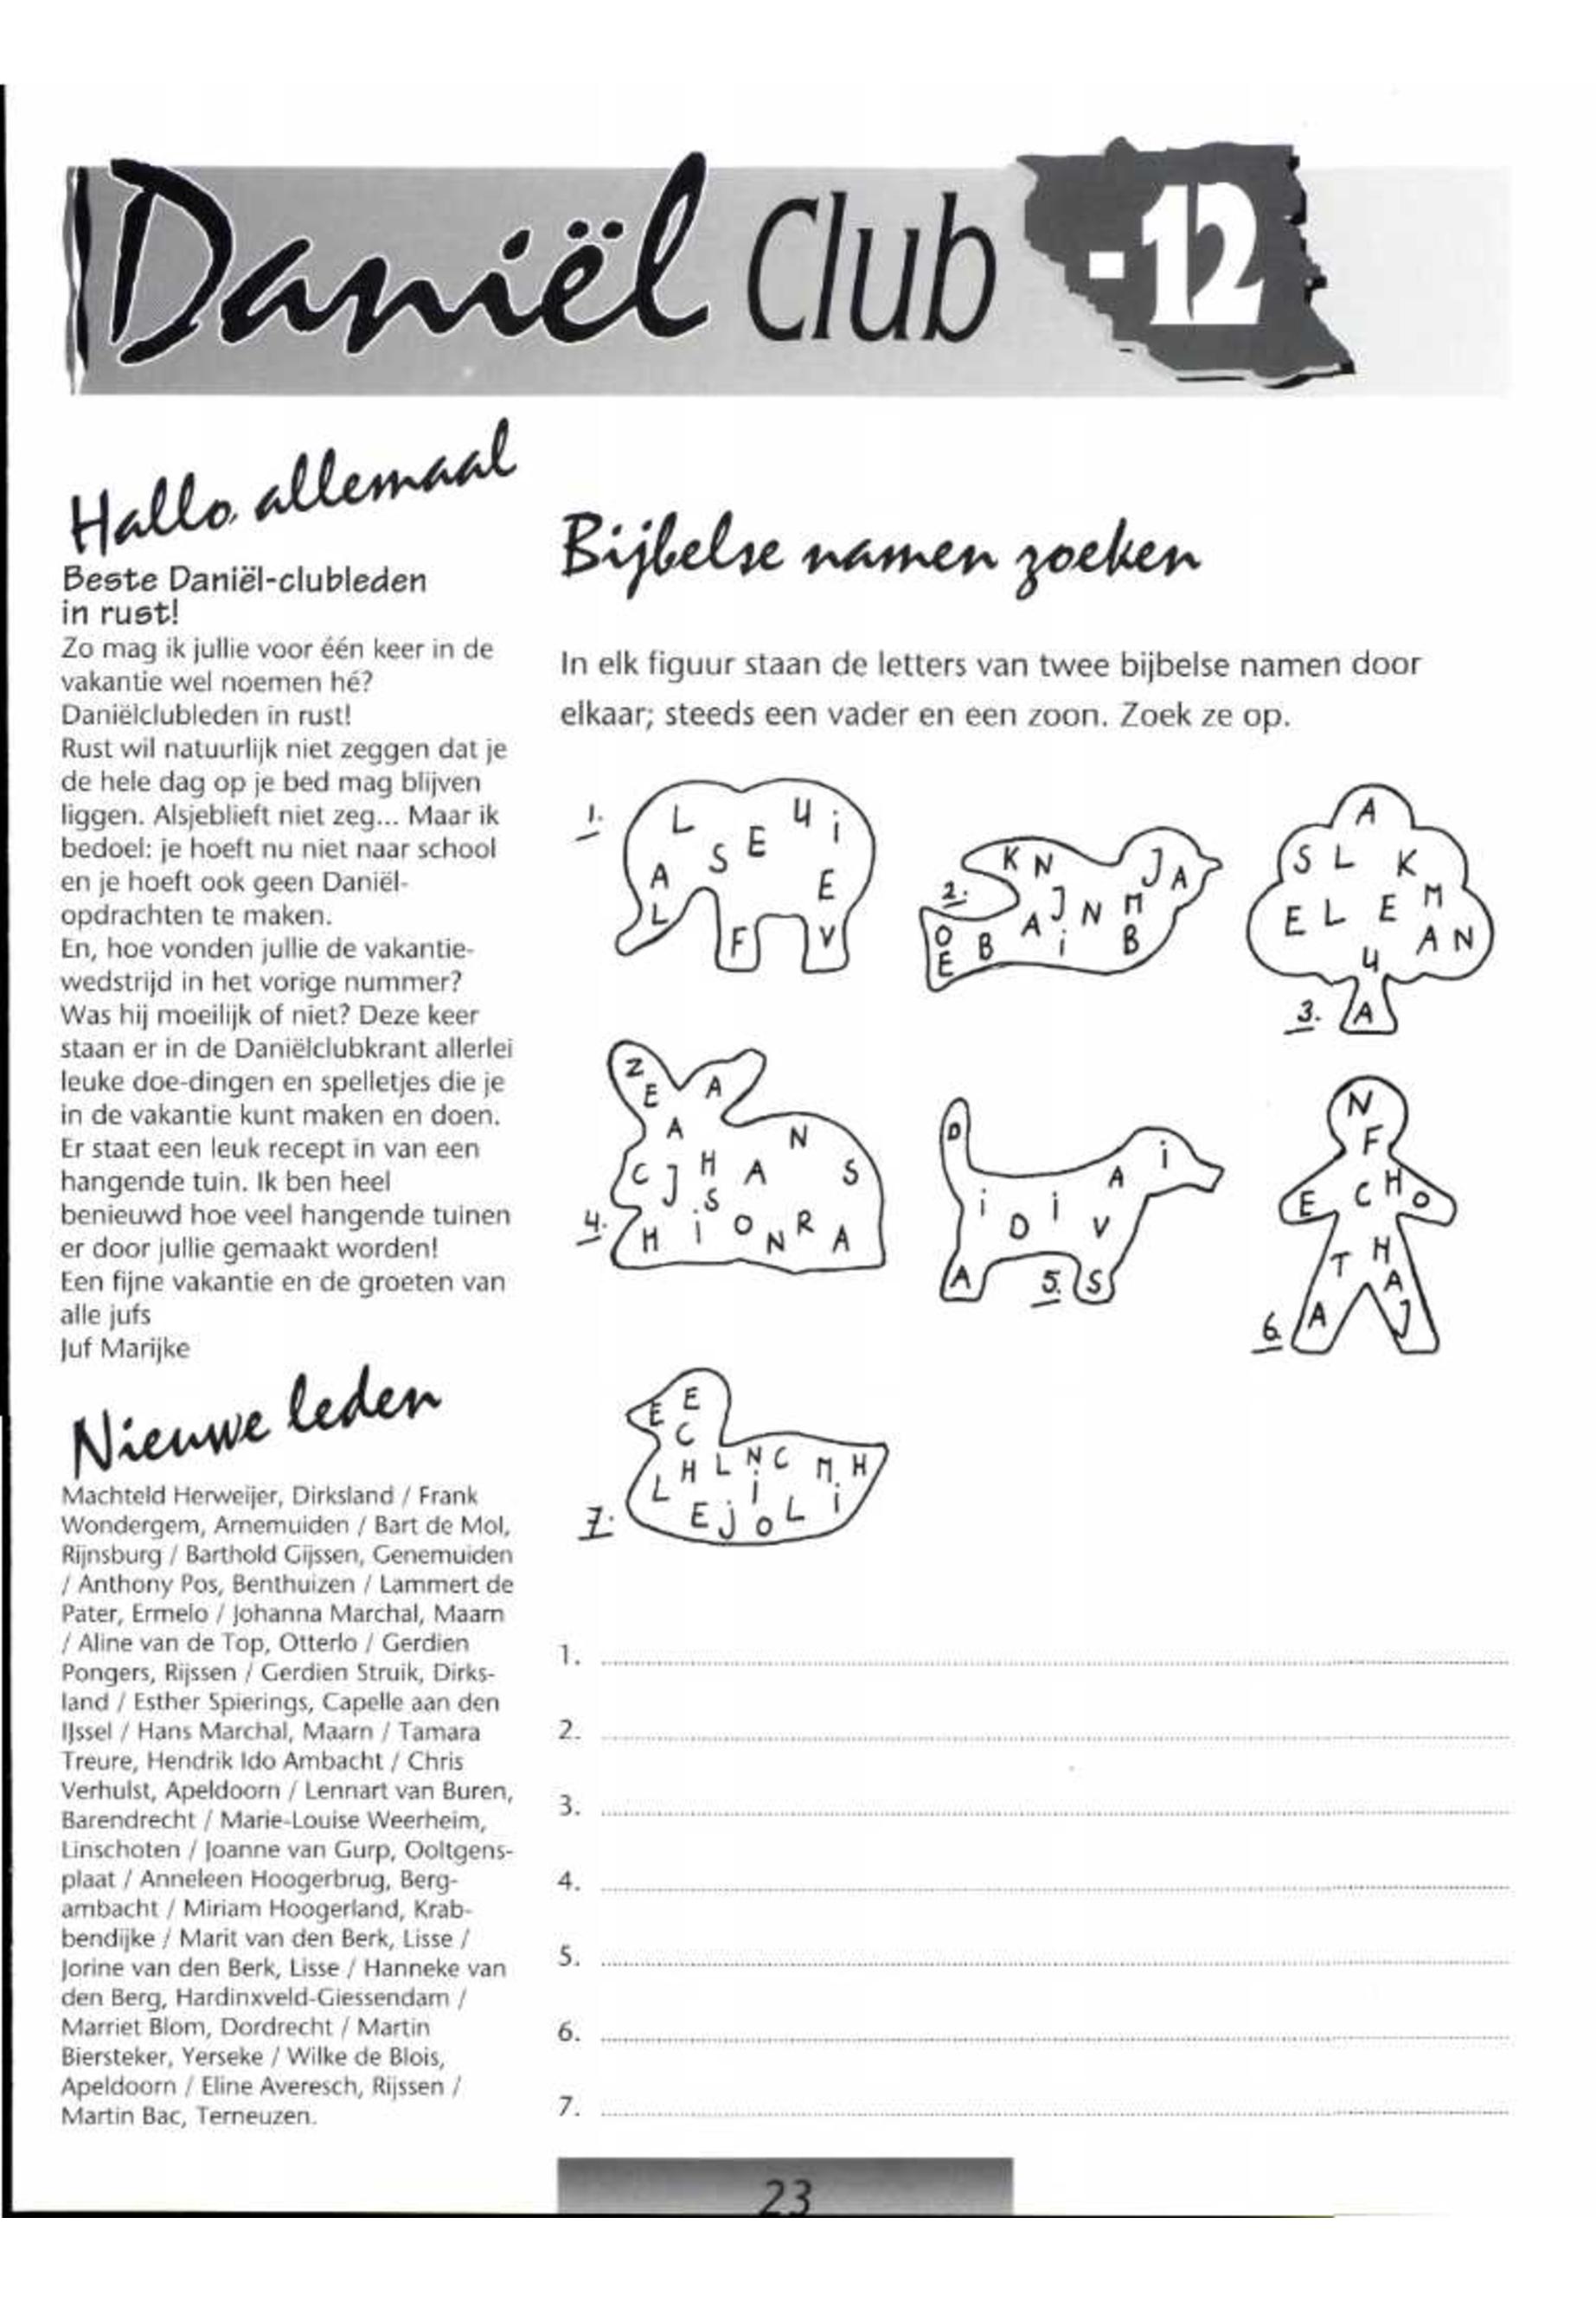 Daniël Club -12
Hallo allemaal
Beste Daniël-clubleden
in rust!
Zo mag ik jullie voor één keer in de
vakantie wel noemen hé?
Daniëlclubleden in rust!
Rust wil natuurlijk niet zeggen dat je
de hele dag op je bed mag blijven
liggen. Alsjeblieft niet zeg... Maar ik
bedoel: je hoeft nu niet naar school
en je hoeft ook geen Daniël-
opdrachten te maken.
En, hoe vonden jullie de vakantie-
wedstrijd in het vorige nummer?
Was hij moeilijk of niet? Deze keer
staan er in de Daniëlclubkrant allerlei
leuke doe-dingen en spelletjes die je
in de vakantie kunt maken en doen.
Er staat een leuk recept in van een
hangende tuin. Ik ben heel
benieuwd hoe veel hangende tuinen
er door jullie gemaakt worden!
Een fijne vakantie en de groeten van
alle jufs
Juf Marijke
Nieuwe leden
Machteld Herweijer, Dirksland / Frank
Wondergem, Arnemuiden / Bart de Mol,
Rijnsburg / Barthold Gijssen, Genemuiden
/ Anthony Pos, Benthuizen / Lammert de
Pater, Ermelo / Johanna Marchal, Maarn
/ Aline van de Top, Otterlo / Gerdien
Pongers, Rijssen / Gerdien Struik, Dirks-
land / Esther Spierings, Capelle aan den
IJssel / Hans Marchal, Maarn / Tamara
Treure, Hendrik Ido Ambacht / Chris
Verhulst, Apeldoorn / Lennart van Buren,
Barendrecht / Marie-Louise Weerheim,
Linschoten / Joanne van Gurp, Ooltgens-
plaat / Anneleen Hoogerbrug, Berg-
ambacht / Miriam Hoogerland, Krab-
bendijke / Marit van den Berk, Lisse /
Jorine van den Berk, Lisse / Hanneke van
den Berg, Hardinxveld-Giessendam /
Marriet Blom, Dordrecht / Martin
Biersteker, Yerseke / Wilke de Blois,
Apeldoorn / Eline Averesch, Rijssen /
Martin Bac, Terneuzen.
Bijbelse namen zoeken
In elk figuur staan de letters van twee bijbelse namen door
elkaar; steeds een vader en een zoon. Zoek ze op.
1.
L U i
S E
A E
L F V
2.
K N J A
A J N M
O B i B
E
3.
A
S L K
E L E M
U A N
A
4.
Z
E A
A N
C J H A S
S
H i O N R A
5.
D i
A
i D i V
A S
6.
N
F
E C H O
T H
A
A J
7.
E E
C
H L N C M H
L i i
E J O L
1.
2.
3.
4.
5.
6.
7.
23